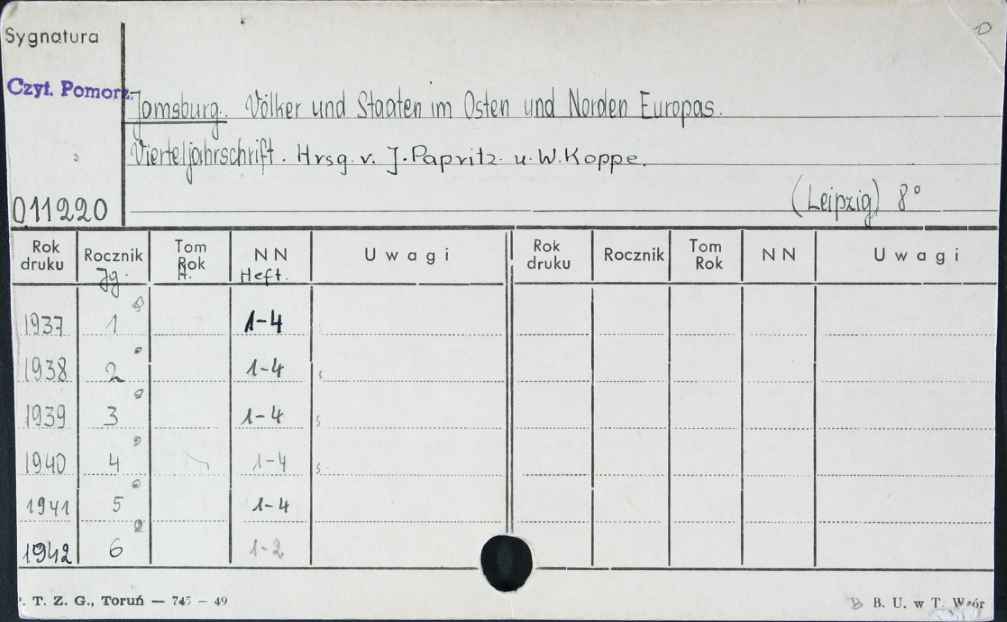 Sygnatura
Czyt. Pomorz.
Jomsburg. Völker und Staaten im Osten und Norden Europas.
Vierteljahrschrift. Hrsg. v. J. Papritz. u. W. Koppe.
011220
(Leipzig) 8°
Rok druku Rocznik Tom Rok NN Uwagi Rok druku Rocznik Tom Rok NN Uwagi
Jg. H. Heft.
1937 1 1-4
1938 2 1-4
1939 3 1-4
1940 4 1-4
1941 5 1-4
1942 6 1-2
T. Z. G., Toruń — 745 – 49
B. U. w T. Wzór